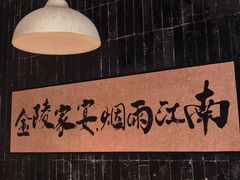 金陵家宴,烟雨江南